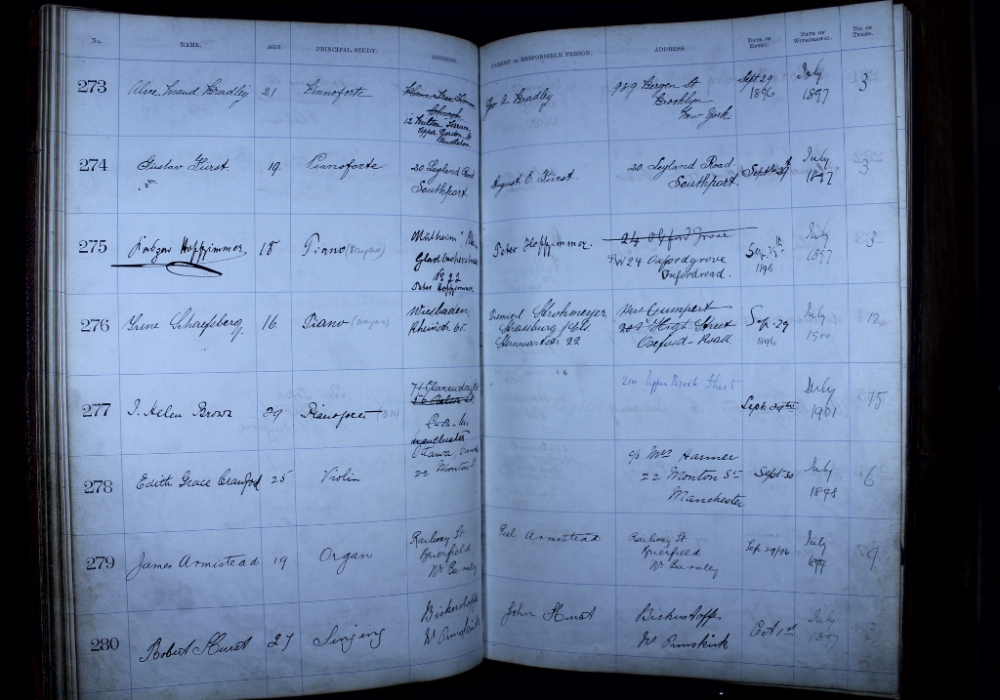 No. NAME. AGE. PRINCIPAL STUDY. ADDRESS. PARENT OR RESPONSIBLE PERSON. ADDRESS. DATE OF ENTRY. DATE OF WITHDRAWAL. NO. OF TERMS.
273 Alice Maud Bradley 21 Pianoforte
12 Milton Terrace
Upper
Pendleton
Jos A. Bradley
989 Bergen St
Brooklyn
New York
Sept 29
1896
July
1897
3
274 Gustav Fürst 19 Pianoforte
20 Leyland Road
Southport
August E. Fürst
20 Leyland Road
Southport
Sept 29
July
1897
3
275 Hoffzimmer 18 Piano (Dayas)
Mülheim
No 22
Peter Hoffzimmer
Peter Hoffzimmer.
24 Oxford Grove
24 Oxfordgrove
Oxfordroad.
Sep. 29th
1896
July
1897
3
276 Irene Schaefsberg 16 Piano (Dayas)
Wiesbaden,
Rheinstr. 65.
Strohmeyer
Strassburg i/Els
22
Mrs Gumpert
High Street
Oxford-Road
Sep. 29
1896
July
1900
12
277 I. Helen Brown 29 Pianoforte
Manchester
210 Upper Brook Street
Sept. 29th
July
1901
15
278 Edith Grace Crawford 25 Violin
Ottawa,
22 Monton St
c/o Mrs Harmer
22 Monton St
Manchester
Sept 30
July
1898
6
279 James Armistead 19 Organ
Railway St
Brierfield
Nr Burnley
Armistead
Railway St
Brierfield
Nr Burnley
Sep. 29/96
July
1899
9
280 Robert Hurst 27 Singing
Bickerstaffe
Nr Ormskirk
John Hurst
Bickerstaffe
Nr Ormskirk
Oct 1st
July
1897
3